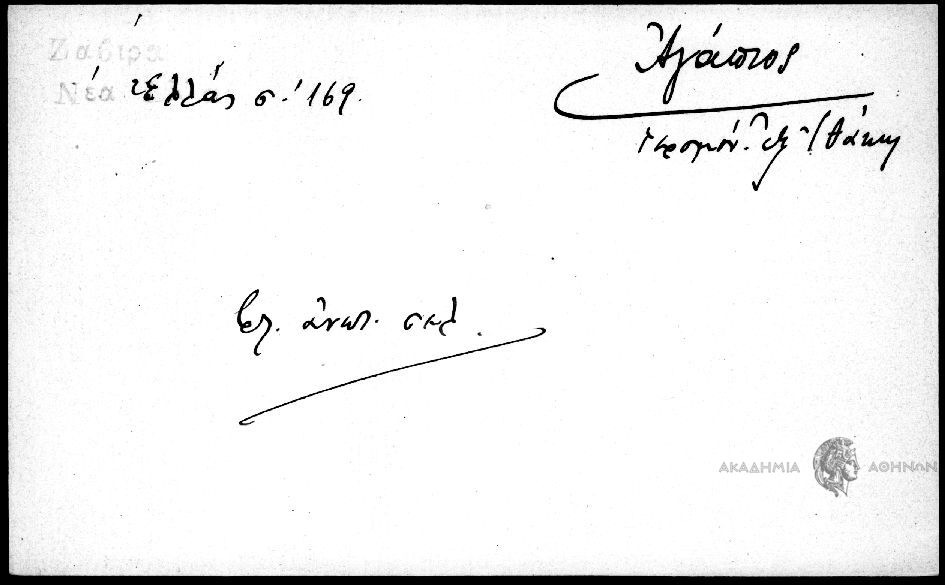 Ζαβιρα
Νέα Ἑλλάς σ. 169.
Ἀγάπιος
ἱερομόν. ἐξ Ἰθάκης
βλ. ἀνωτ. σελ.
ΑΚΑΔΗΜΙΑ ΑΘΗΝΩΝ